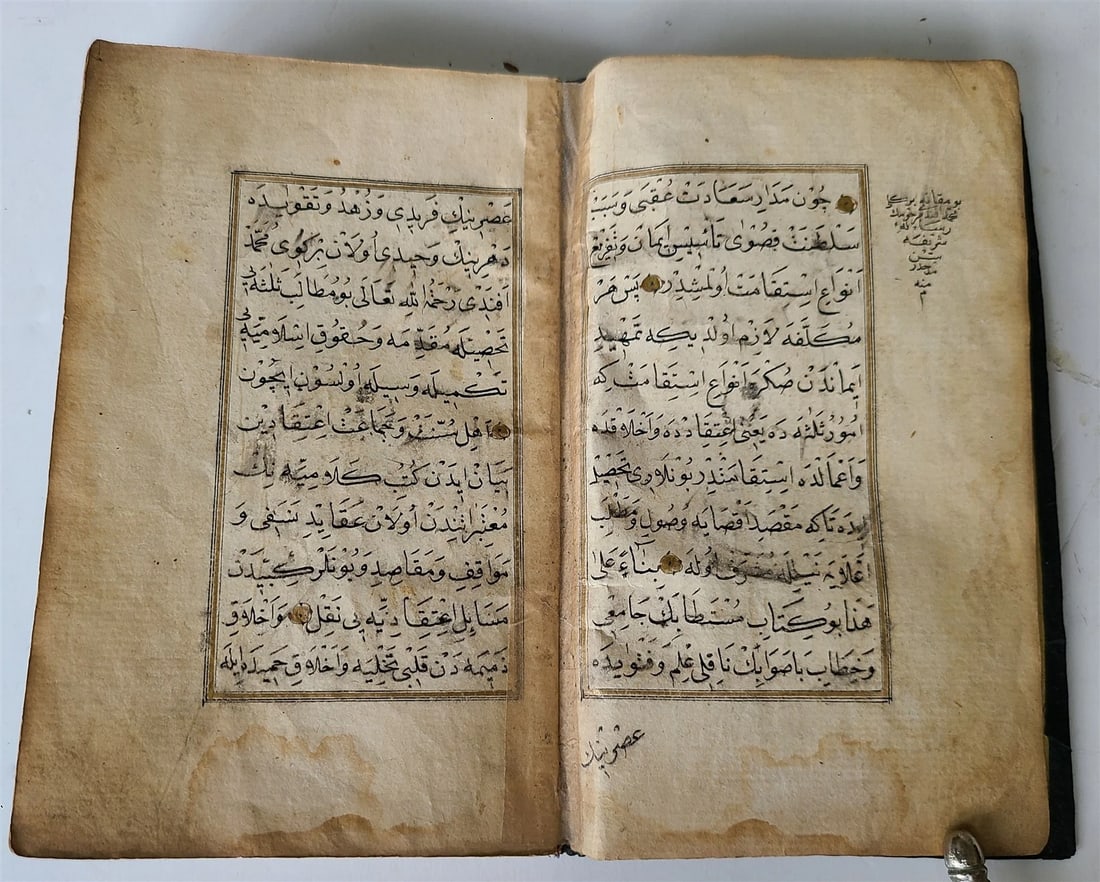 چون مدار سعادت عقبى وسبب
سلطنت قصوى تأسيس ايمان وتفريع
انواع استقامت اولمشدر پس هر
مكلفه لازم اولديكه تمهيد
ايماندن صكره انواع استقامت كه
امور ثلثه ده يعنى اعتقادده واخلاقده
واعمالده استقامتدر بونلارى تحصيل
ايده تاكه مقصد اقصايه وصول ومطلب
اعلايه نيله اوله بناء على
هذا بو كتاب مستطابك جامعى
وخطاب باصوابك ناقلى علم وفتوايده
عصرينك
بو مقامده
شريفه
منه
عصرينك فريدى وزهد وتقوايده
دهرينك وحيدى اولان بركوى محمد
افندى رحمه الله تعالى بو مطالب ثلثه يى
تحصيله مقدمه وحقوق اسلاميه يى
تكميله وسيله اولسون ايچون
اهل سنت وجماعت اعتقادين
بيان ايدن كتب كلاميه نك
معتبراتندن اولان عقايد نسفى و
مواقف ومقاصد وبونلر كبيدن
مسائل اعتقاديه يى نقل واخلاق
ذميمه دن قلبى تخليه واخلاق حميده ايله